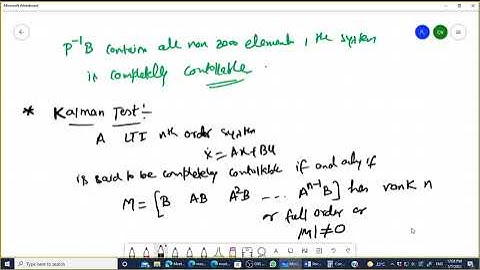 Microsoft Whiteboard
P⁻¹B contains all non zero elements, the system
is completely contollable.
* Kalman Test:-
A LTI nth order system
ẋ = AX+BU
is said to be completely contollable if and only if
M = [B AB A²B .... Aⁿ⁻¹B] has rank n
or full order or
|M| ≠ 0